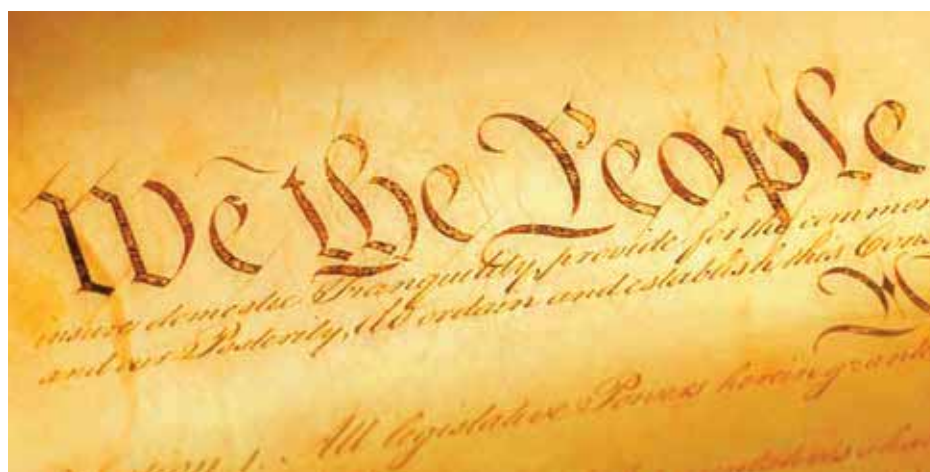 We the People
insure domestic Tranquility, provide for the common
and our Posterity, do ordain and establish this Cons
Section 1. All legislative Powers herein grante